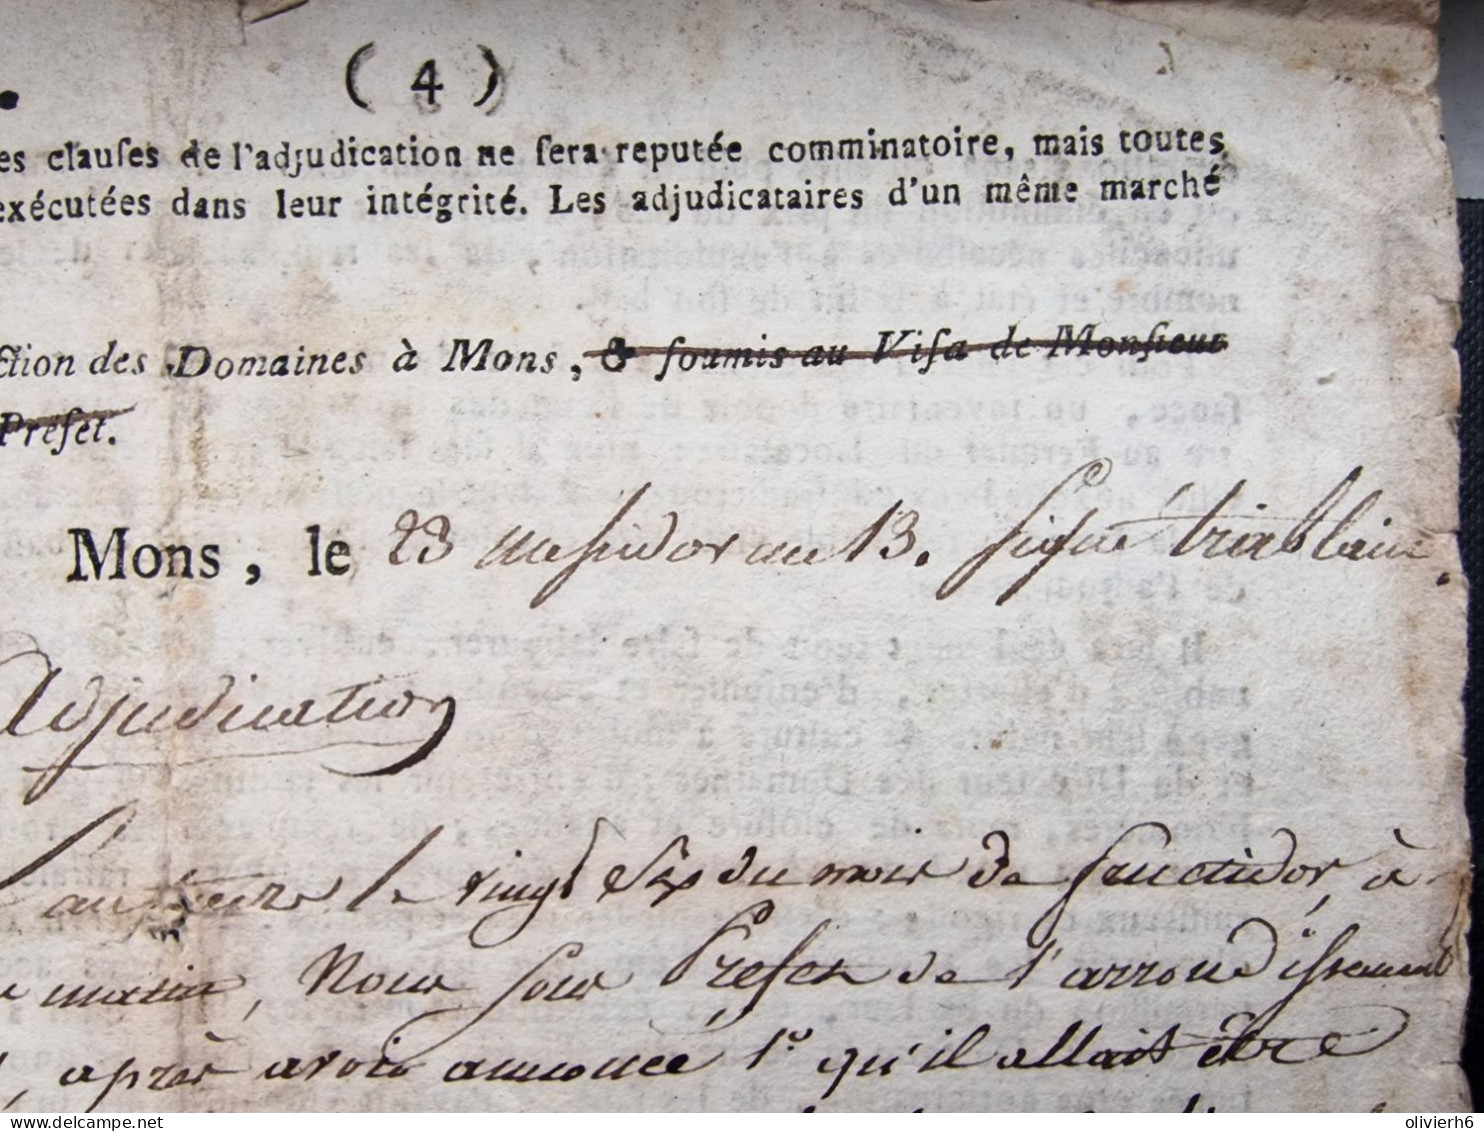 ( 4 )
es clauſes de l'adjudication ne ſera reputée comminatoire, mais toutes
exécutées dans leur intégrité. Les adjudicataires d'un même marché
ction des Domaines à Mons, & ſoumis au Viſa de Monſieur
Préfet.
Mons, le 23 messidor an 13. signé
Adjudication
L'an treize le vingt six du mois de fructidor, à
matin, Nous sous Préfet de l'arrondissement
, après avoir annoncé 1° qu'il allait être
delcampe.net
olivierh6